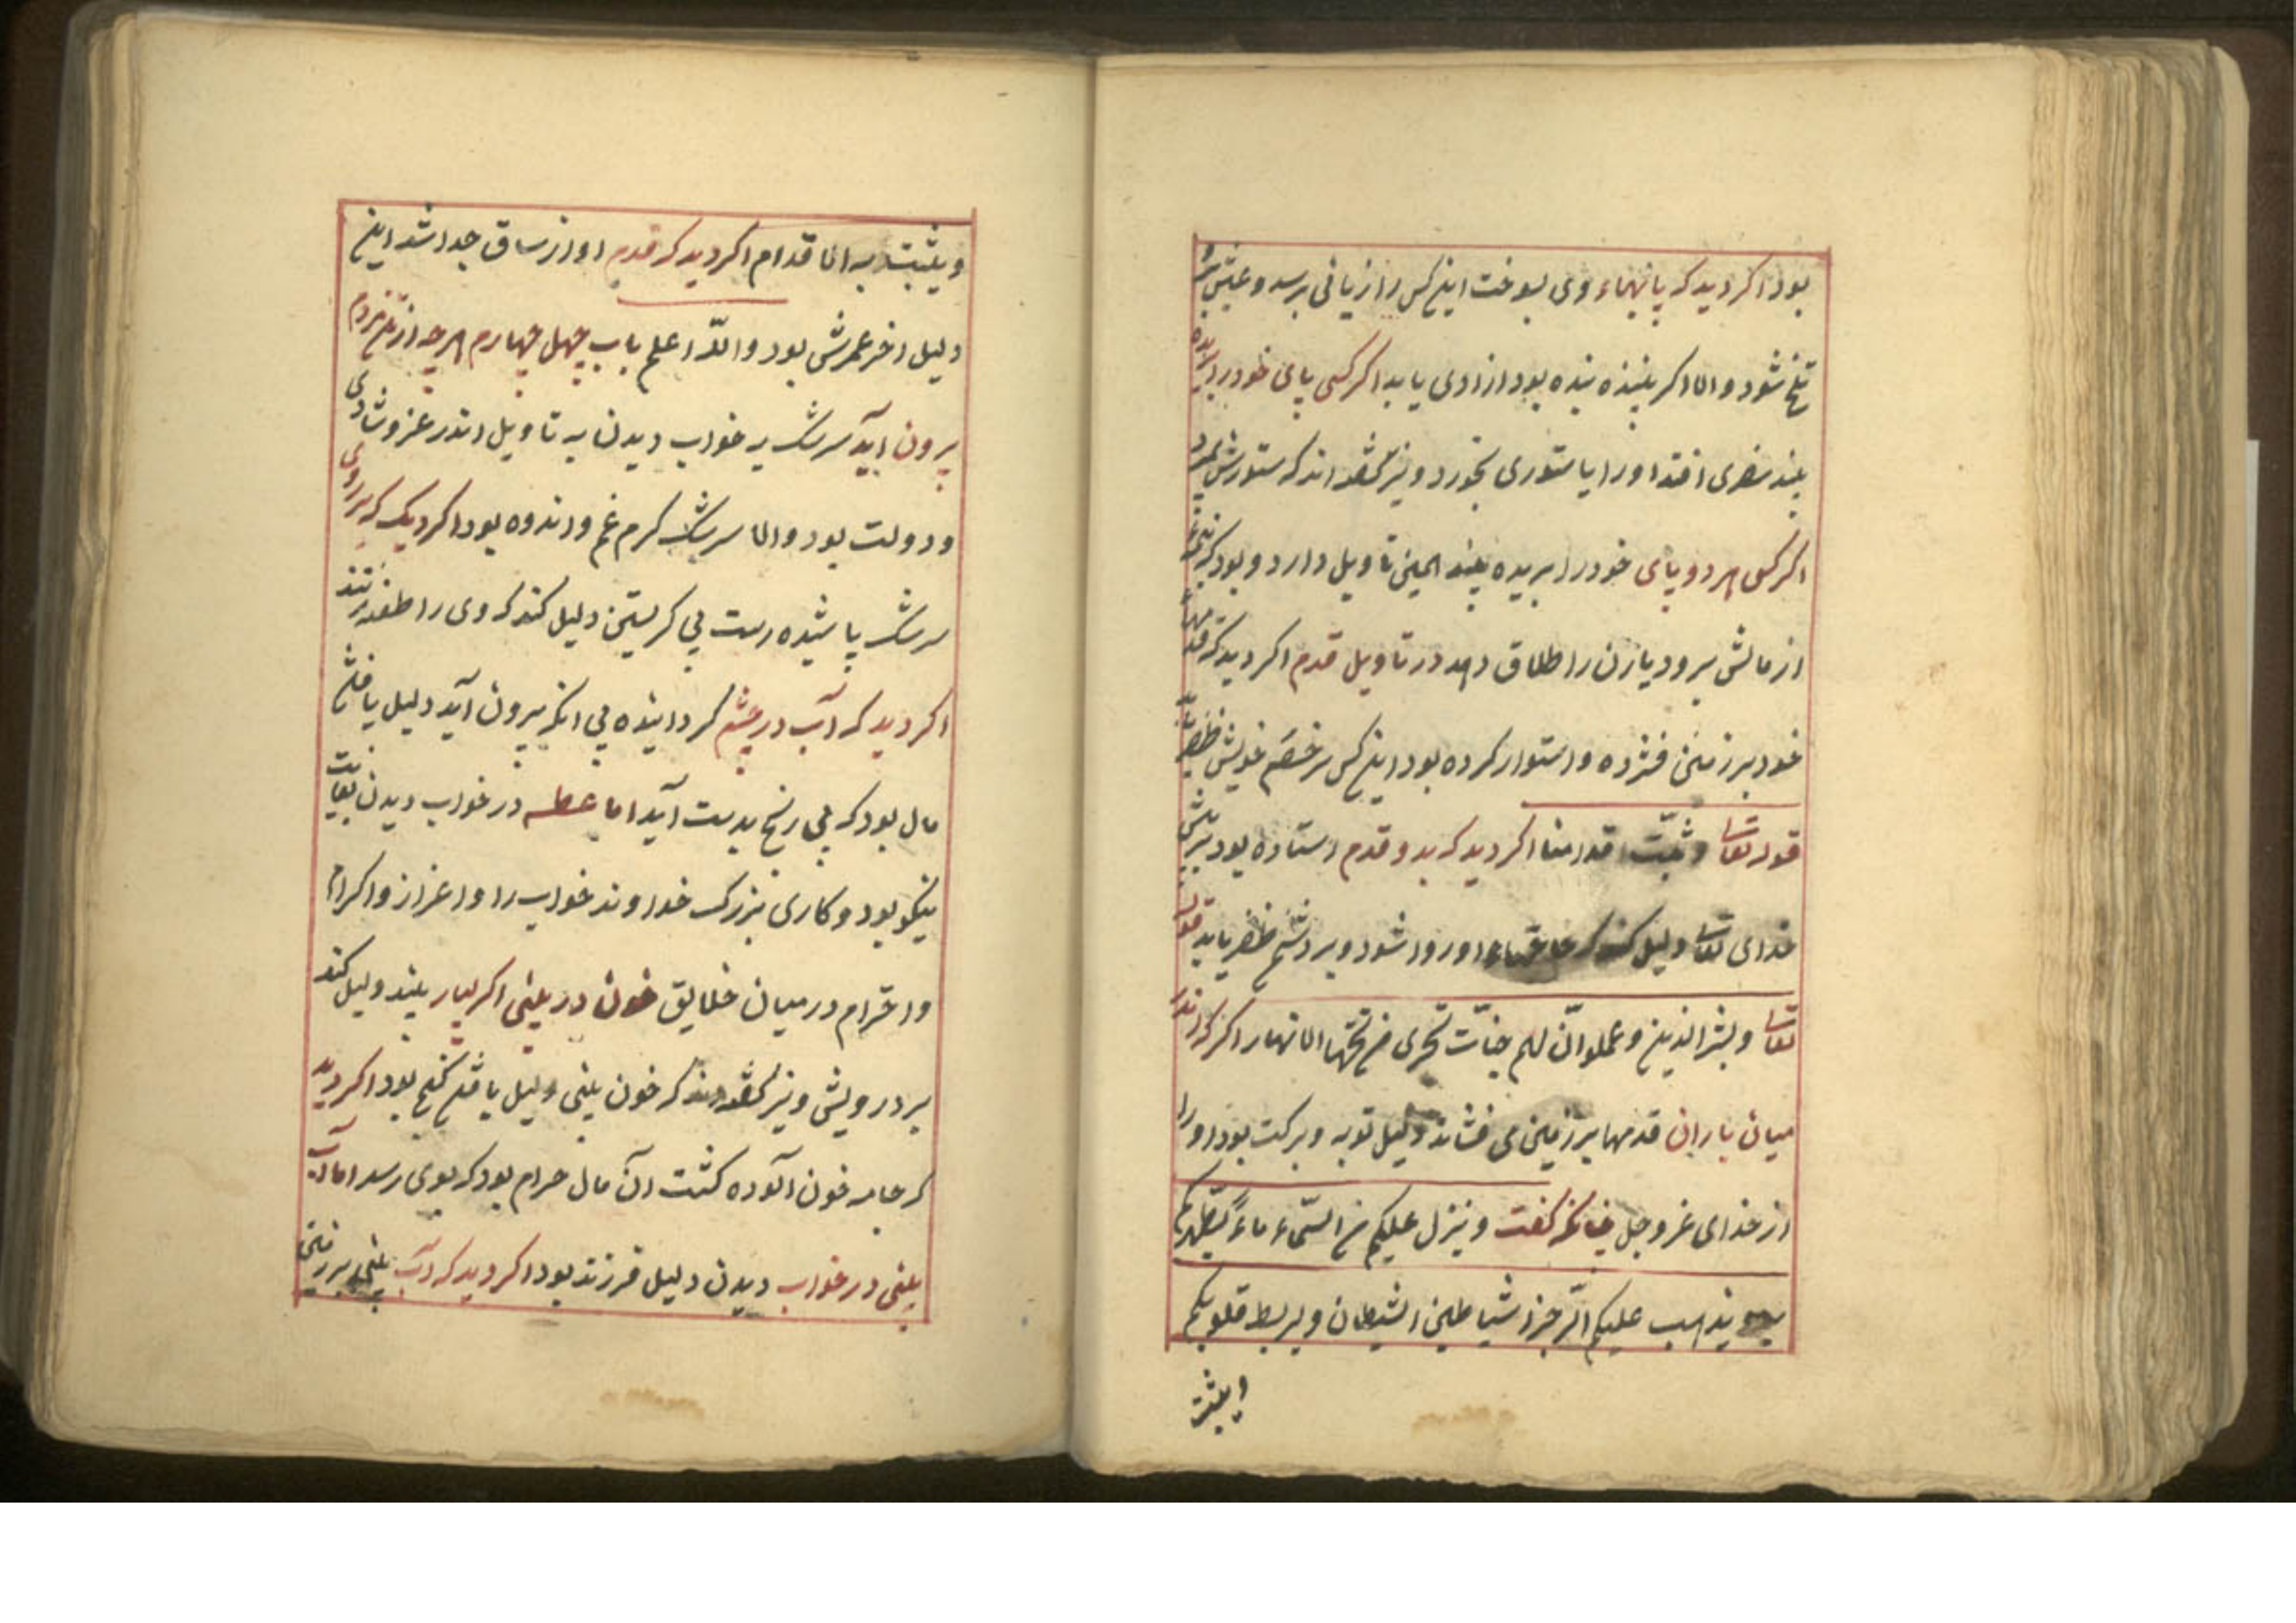 بود اکر دید که پاشنهاء وی بسوخت این کس را زیانی برسد و عیش
تلخ شود و الا اکر بیننده بنده بود ازادی یابد اکر کسی پای خود را
بیند سفری افتد او را یا ستوری بخورد و نیز کفته اند که ستورش بمیرد
اکر کسی هر دو پای خود را بریده بیند همین تاویل دارد و بود که
از مالش برود یا زن را طلاق دهد در تاویل قدم اکر دید که قدمها
خود بر زمین فشرده و استوار کرده بود این کس بر خصم خویش ظفر یابد
قوله تعالی و ثبت اقدامنا اکر دید که بدو قدم استاده بود
خدای تعالی دلیل کند که حاجتهاء او روا شود و بر دشمن ظفر یابد قوله
تعالی و بشر الذین و عملوا انّ لهم جنّات تجری من تحتها الانهار اکر که اندر
میان باران قدمها بر زمین می فشاند دلیل توبه و برکت بود او را
از خدای عز و جل چنانکه کفت و ینزل علیکم من السّماء ماءً لیطهّرکم
به و یذهب علیکم الرّجز اشیاطین الشیطان و لیربط قلوبکم
و یثبت
و یثبت به الاقدام اکر دید که قدم او از ساق جدا شد این
دلیل اخر عمرش بود و اللّه اعلم باب چهل چهارم هرچه از تن مردم
برون آید سرشک به خواب دیدن به تاویل اندر عز و شادی
و دولت بود و الا سرشک کرم غم و اندوه بود اکر دید که بر روی
سرشک پاشیده است بی کریستن دلیل کند که وی را طعنه زنند
اکر دید که آب در چشم کردانیده بی انکه بیرون آید دلیل یافتن
مال بود که بی رنج بدست آید اما عطسه در خواب دیدن بغایت
نیکو بود و کاری بزرک خداوند خواب را و اعزاز و اکرام
و احترام در میان خلایق خون در بینی اکر بسیار بیند دلیل کند
بر درویشی و نیز کفته اند که خون بینی دلیل یافتن کنج بود اکر دید
که جامه خون آلوده کشت آن مال حرام بود که بوی رسد اما آب
بینی در خواب دیدن دلیل فرزند بود اکر دید که آب بینی بر زمین